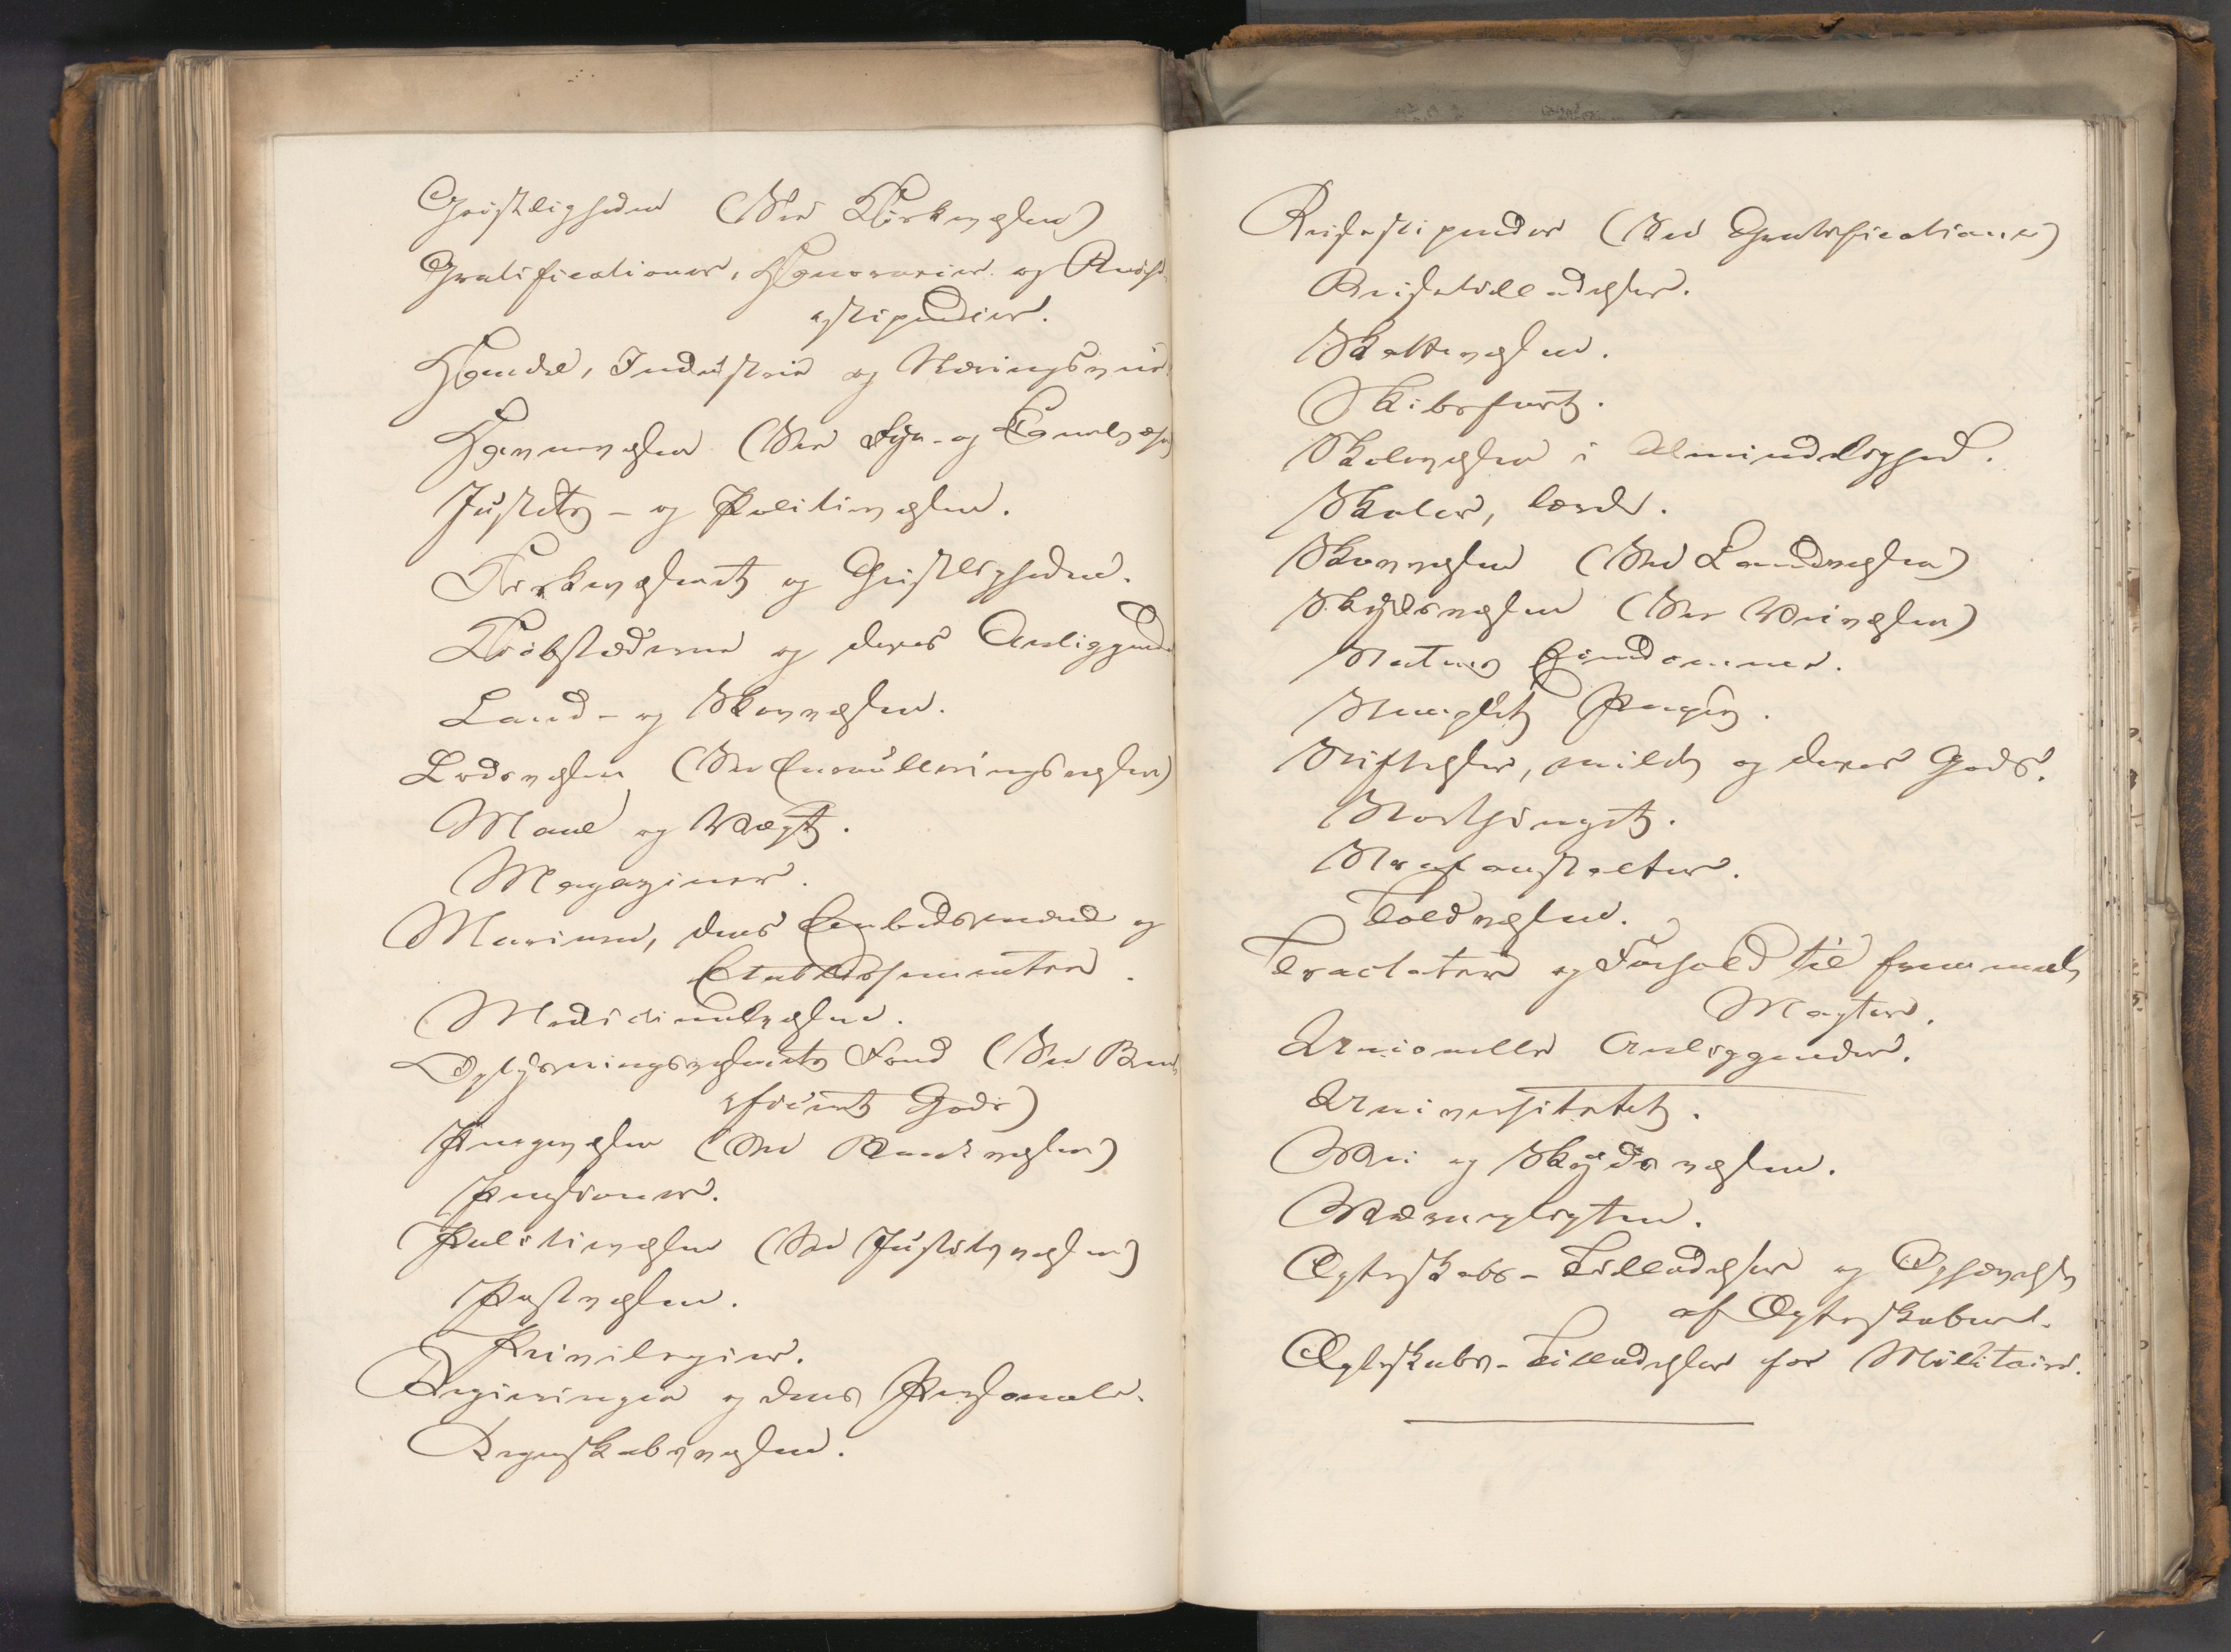 Geistligheden (See Kirkevæsen)
Gratificationer, Honorarier og Reise-
stipendier.
Handel, Industrie og Næringsveie.
Havnevæsen (See Fyr- og Canalvæsen)
Justits- og Politivæsen.
Kirkevæsenet og Geistligheden.
Kiøbstæderne og deres Anliggender
Land- og Skovvæsen.
Lodsvæsen (See Enrulleringsvæsen)
Maal og Vægt.
Magaziner.
Marinen, dens Embedsmænd og
Etablissementer.
Medicinalvæsen.
Oplysningsvæsenets Fond (See Bene-
ficeret Gods)
Pengevæsen (See Bankvæsen)
Pensioner.
Politievæsen (See Justitsvæsen)
Postvæsen.
Privilegier.
Regieringen og dens Personale.
Regnskabsvæsen.
Reisestipendier (See Gratificationer)
Reisetilladelser.
Skattevæsen.
Skibsfart.
Skolevæsen i Almindelighed.
Skoler, lærde.
Skovvæsen (See Landvæsen)
Skydsvæsen (See Veivæsen)
Statens Eiendomme.
Stemplet Papir.
Stiftelser, milde og deres Gods.
Storthinget.
Strafanstalter.
Toldvæsen.
Tractater og Forhold til fremmede
Magter.
Unionelle Anliggender.
Universitetet.
Vei og Skydsvæsen.
Værnepligten.
Ægteskabs-Tilladelser og Ophævelse
af Ægteskaber.
Ægteskabs-Tilladelser for Militaire.